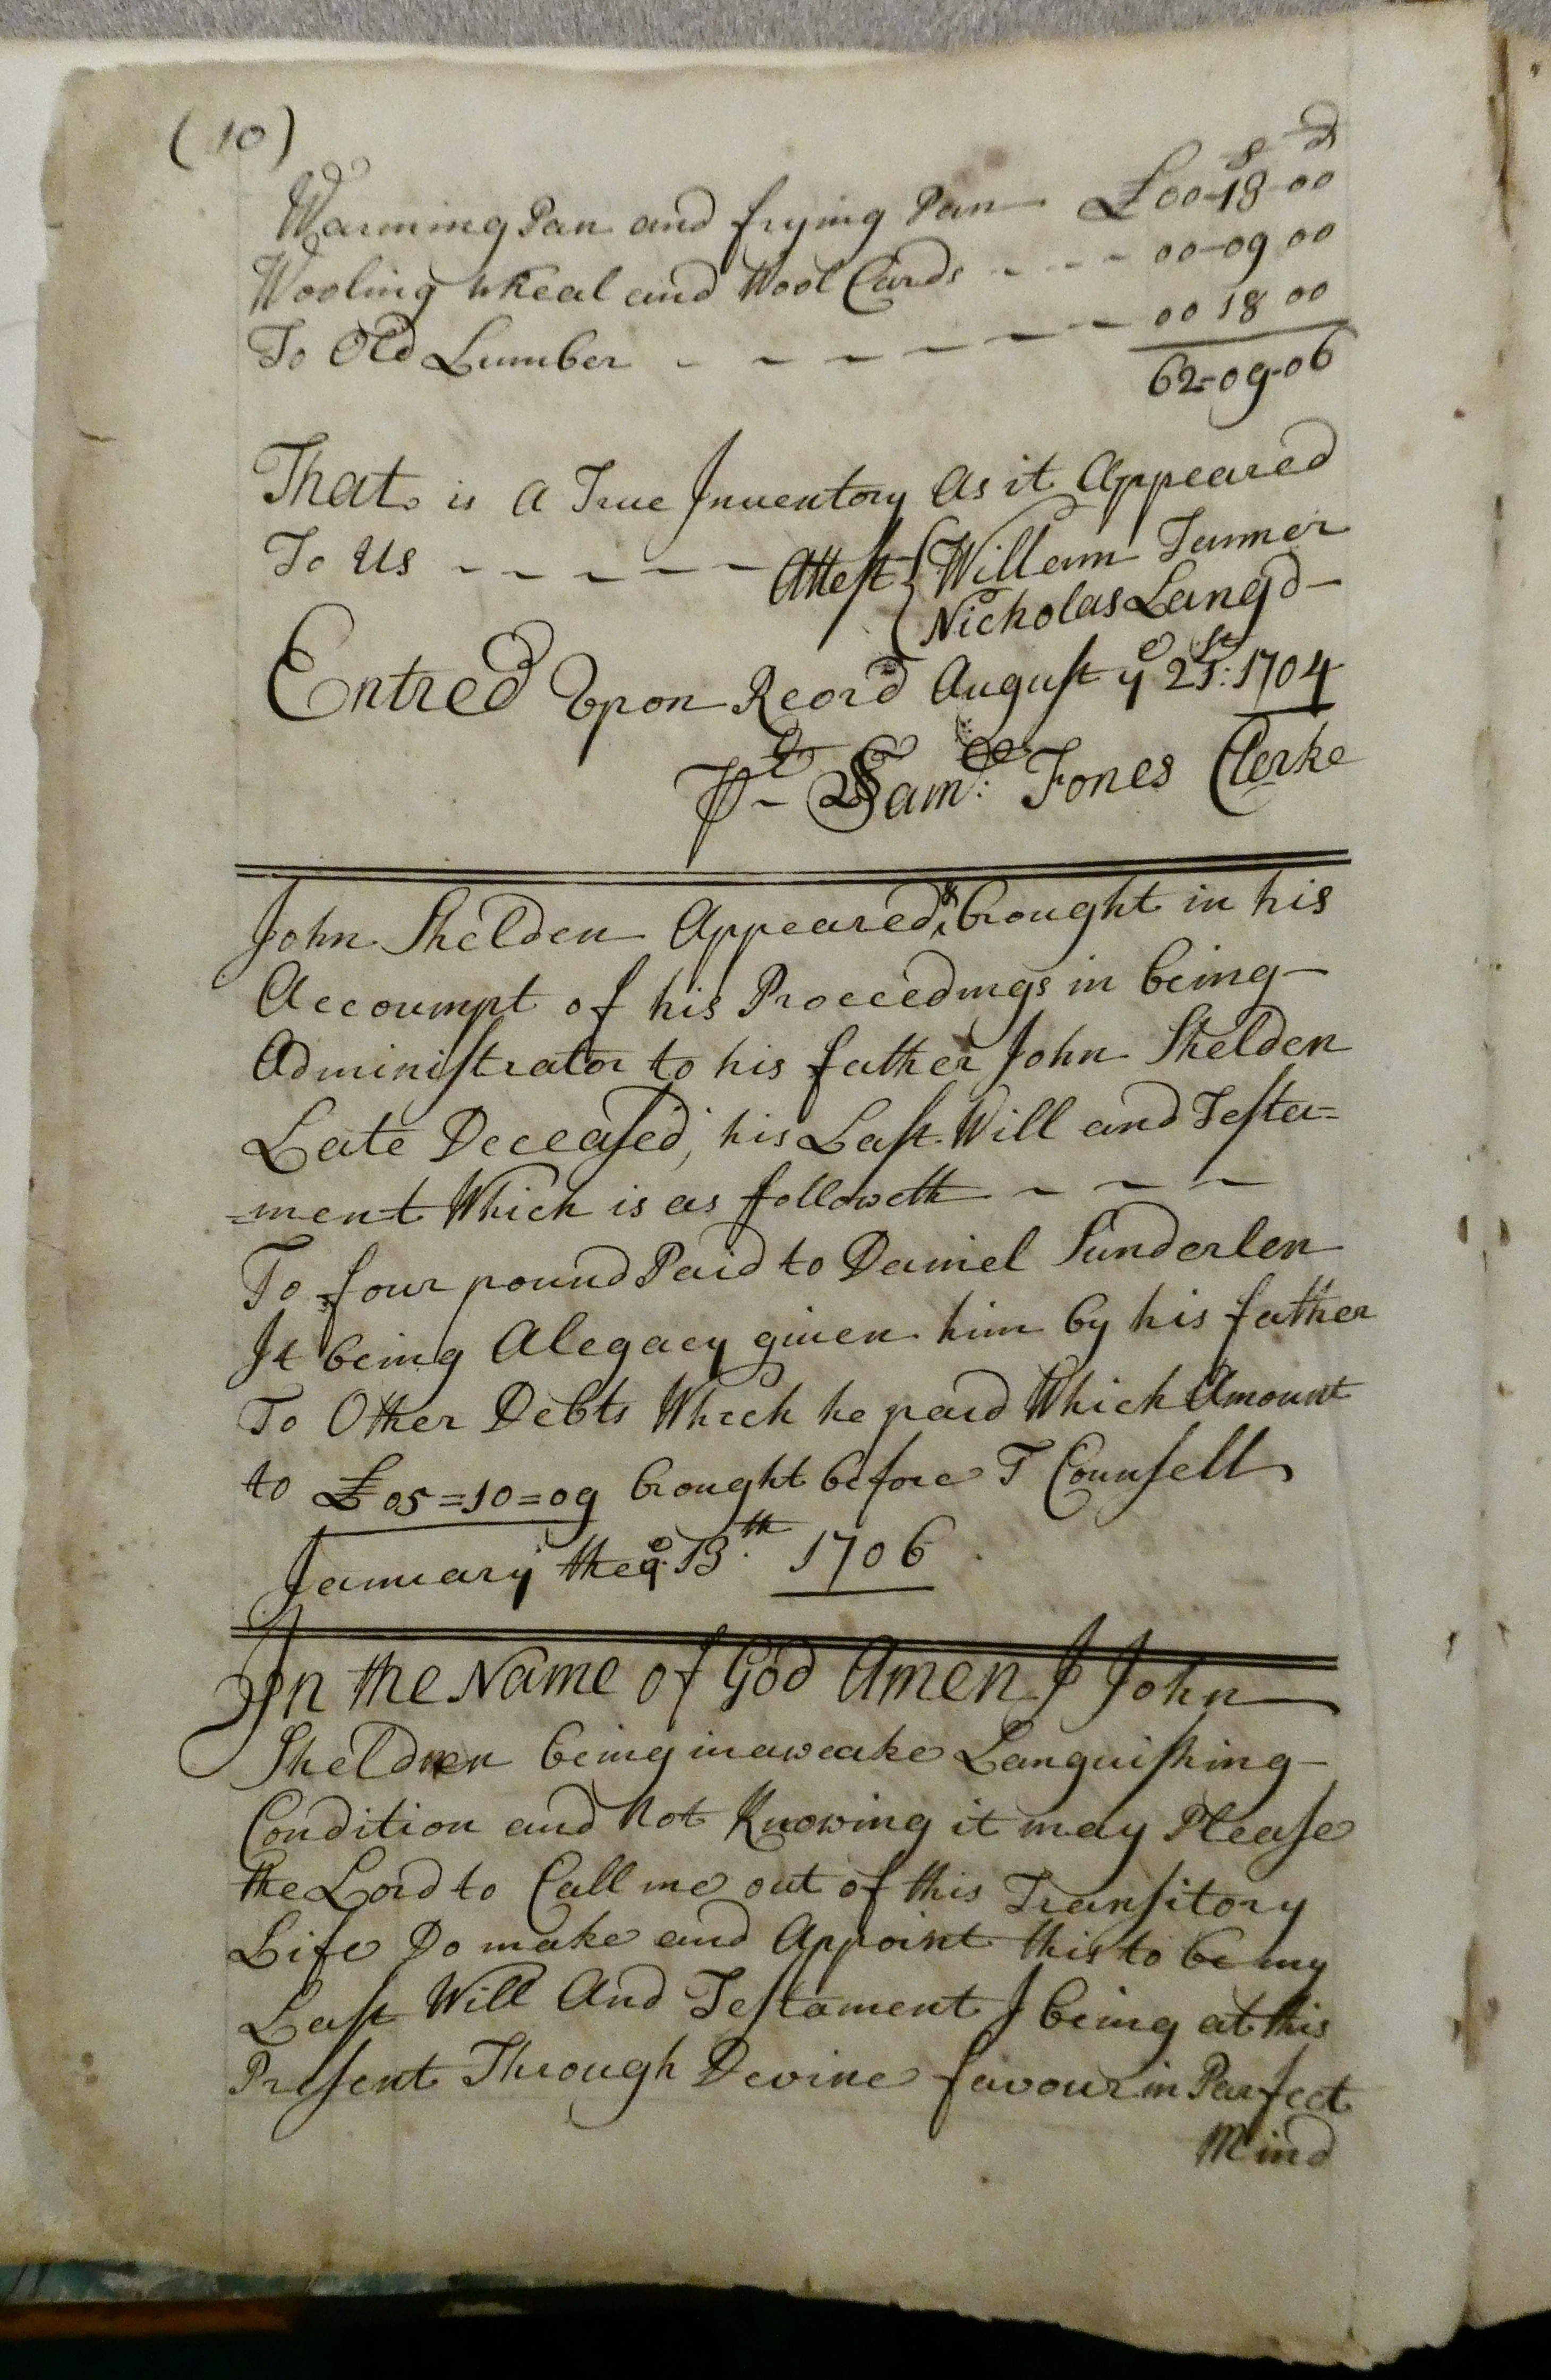 (10)
s d
Warming Pan and frying Pan £00-18-00
Wooling wheal and Wool Cards - - - 00-09 00
To Old Lumber - - - - - - 00 18 00
62-09-06
That is a True Inventory As it Appeared
To Us - - - - - Attest { Willam Tanner
Nicholas Langd
Entred Upon Reord August ye 21st: 1704
Pr Samll: Fones Clerke
John Shelden Appeared & brought in his
Accoumpt of his Proceedings in being
Administrator to his father John Shelden
Late Deceased, his Last Will and Testa=
=ment Which is as followeth - - -
To four pound Paid to Daniel Sunderlen
It being Alegacy given him by his father
To Other Debts Which he paid Which Amount
to £05=10=09 brought before T Counsell
January the ye 13th 1706
In the Name of God Amen I John
Shelden being inaweake Languishing
Condition and Not Knowing it may Please
the Lord to Call me out of this Transitory
Life Do make and Appoint this to be my
Last Will And Testament I being at this
Present Through Devine favour in Parfect
Mind